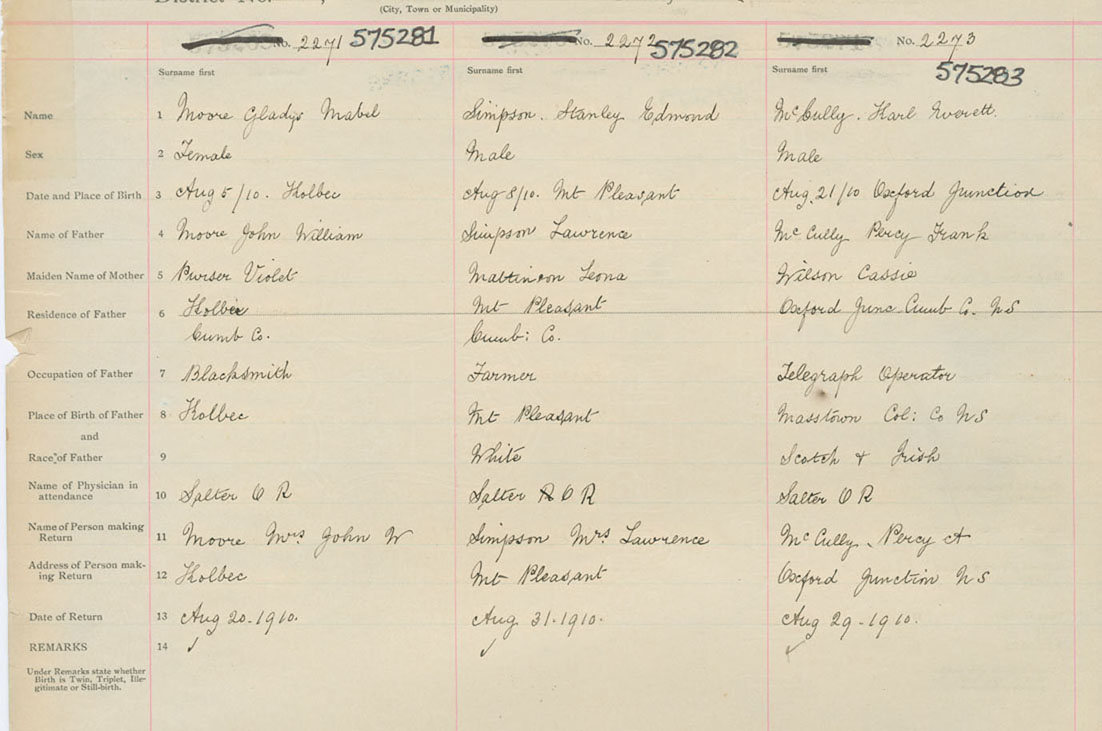 District No.
(City, Town or Municipality)
No. 2271 575281
No. 2272 575282
No. 2273 575283
Surname first Surname first Surname first
Name 1 Moore Gladys Mabel Simpson. Stanley Edmond McCully. Harl Everett.
Sex 2 Female Male Male
Date and Place of Birth 3 Aug 5/10. Holbec Aug 8/10. Mt Pleasant Aug. 21/10 Oxford Junction
Name of Father 4 Moore John William Simpson Lawrence McCully Percy Frank
Maiden Name of Mother 5 Purser Violet Leona Wilson Cassie
Residence of Father 6 Holbec Mt Pleasant Oxford Junc. Cumb Co. NS
Cumb Co. Cumb: Co.
Occupation of Father 7 Blacksmith Farmer Telegraph Operator
Place of Birth of Father 8 Holbec Mt Pleasant Masstown Col: Co NS
and
Race of Father 9 White Scotch + Irish
Name of Physician in
attendance 10 Salter O R Salter O R Salter O R
Name of Person making
Return 11 Moore Mrs John W Simpson Mrs Lawrence McCully, Percy A
Address of Person mak-
ing Return 12 Holbec Mt Pleasant Oxford Junction NS
Date of Return 13 Aug 20-1910. Aug. 31-1910. Aug 29-1910.
REMARKS 14 ✓ ✓ ✓
Under Remarks state whether
Birth is Twin, Triplet, Ille-
gitimate or Still-birth.